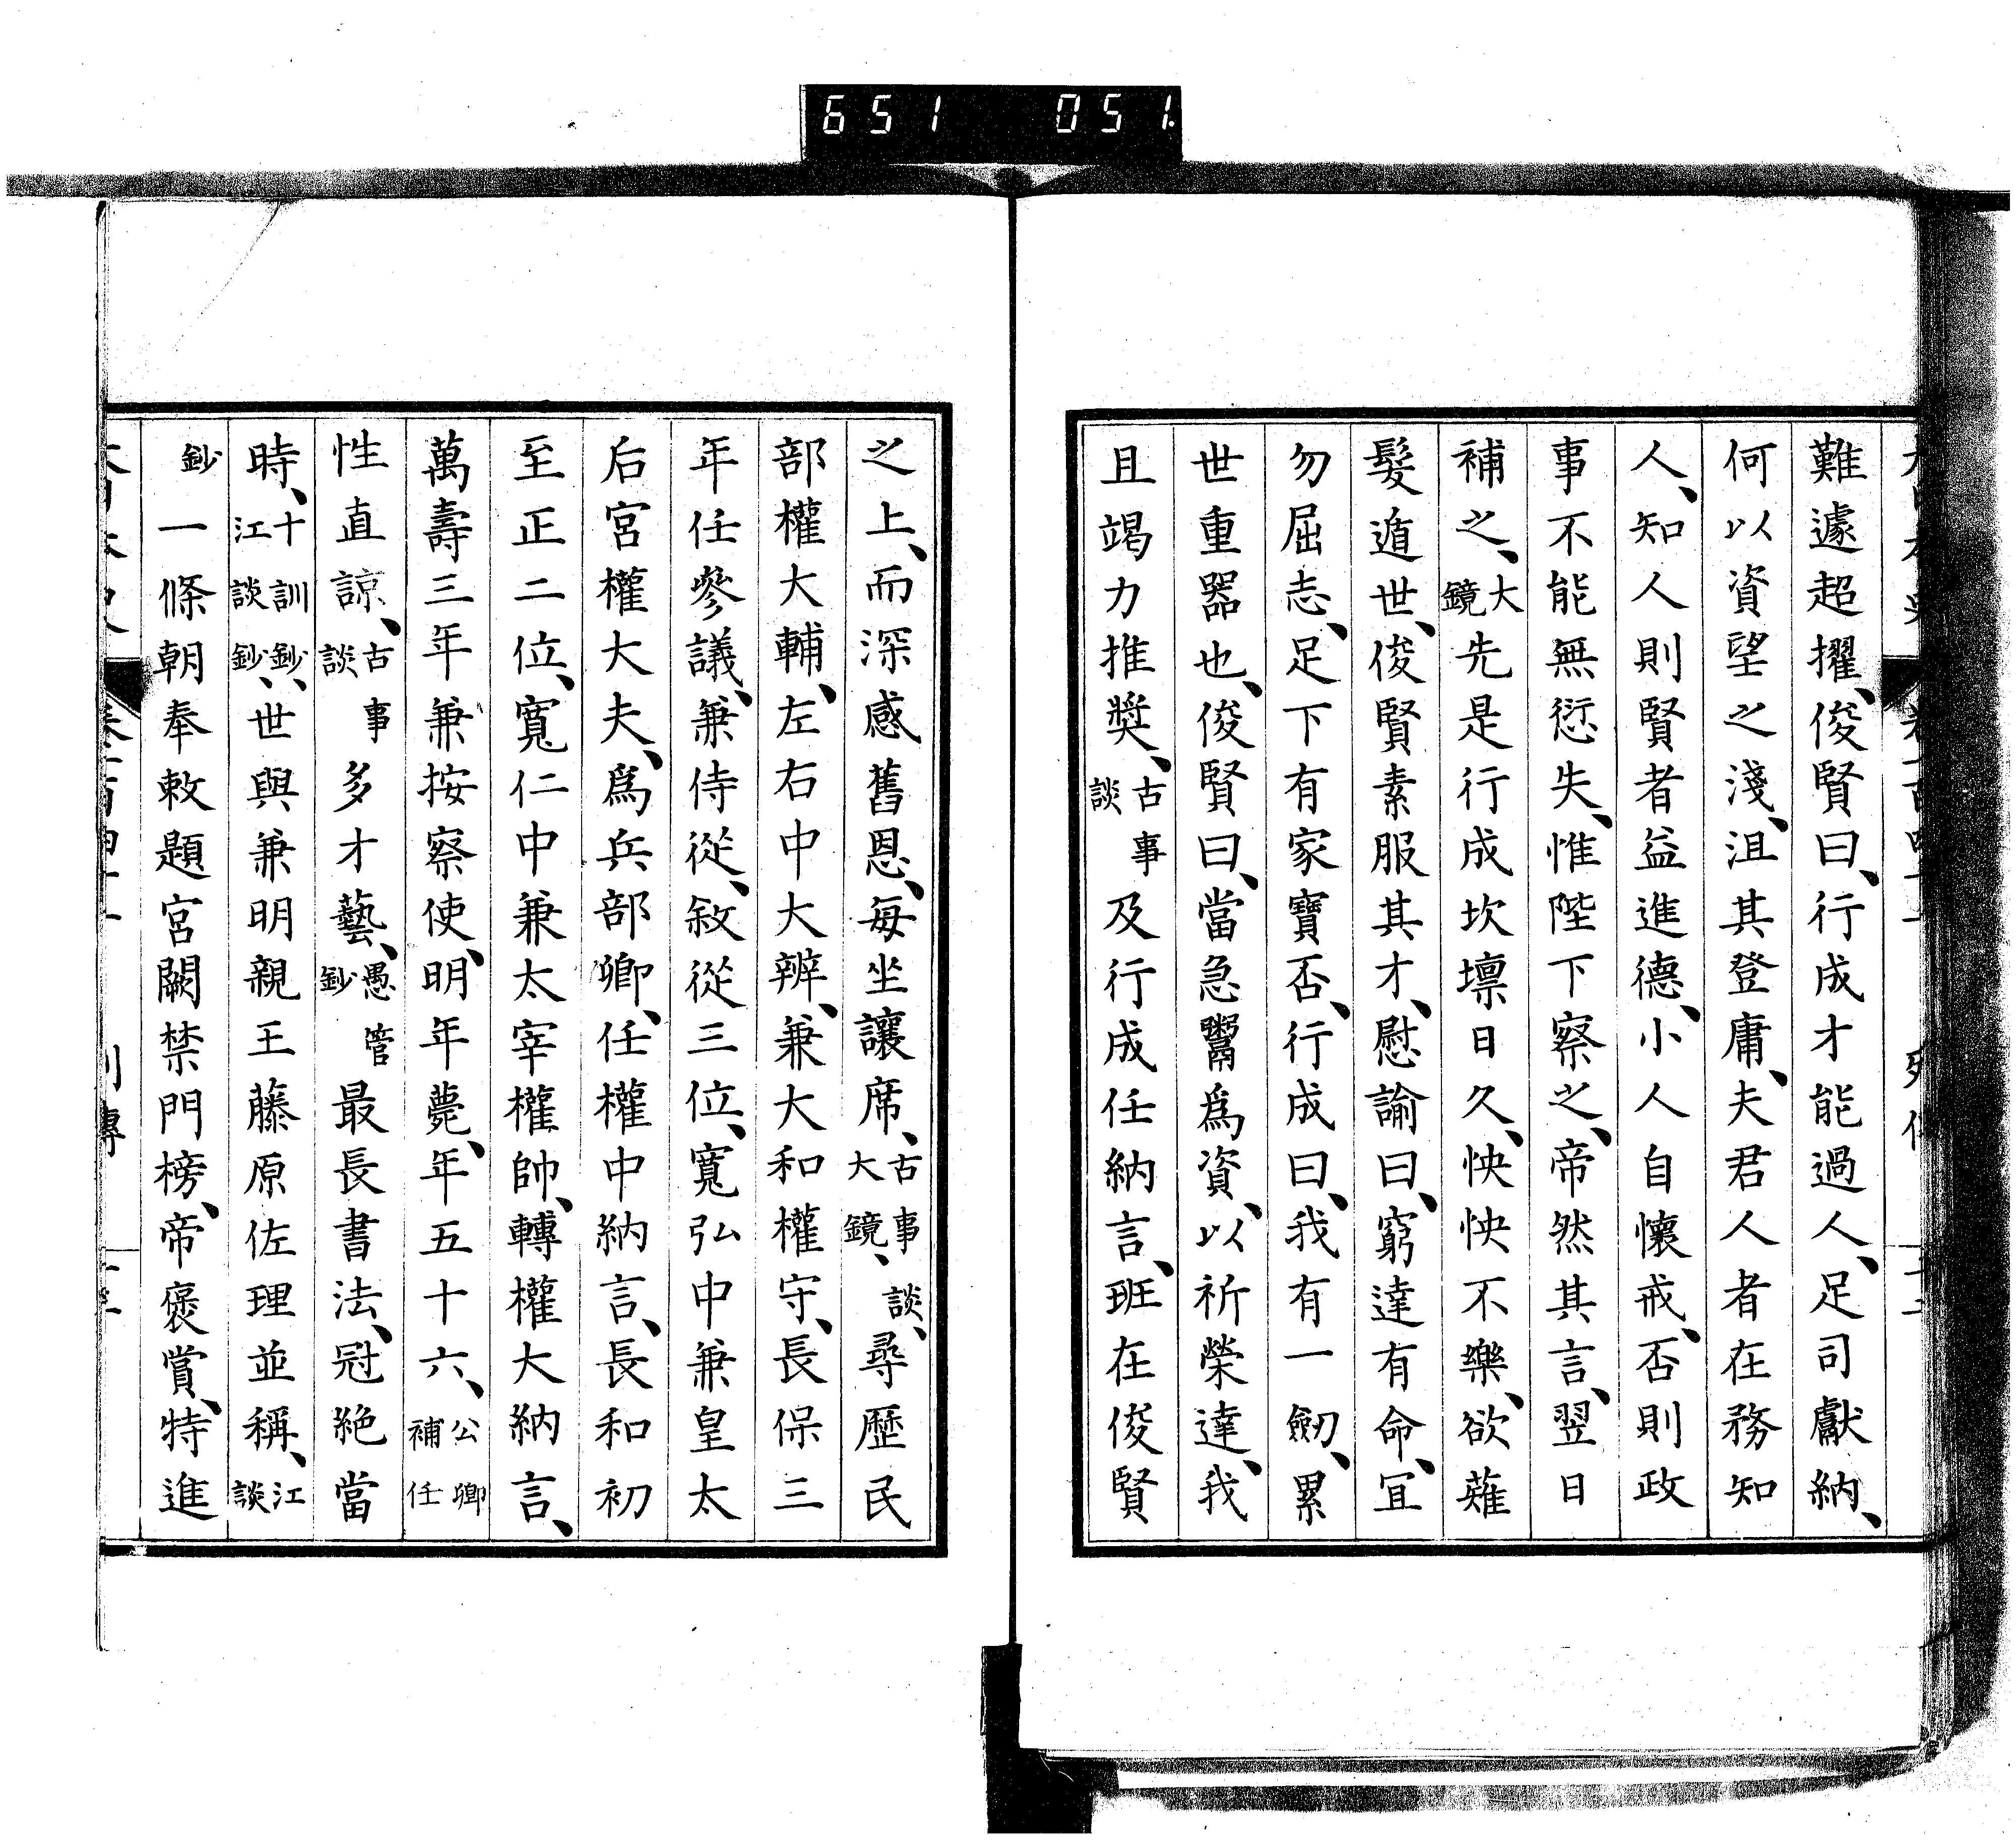 651 051
難遽超擢、俊賢曰、行成才能過人、足司獻納、
何以資望之淺、沮其登庸、夫君人者在務知
人、知人則賢者益進德、小人自懷戒、否則政
事不能無愆失、惟陛下察之、帝然其言、翌日
補之、大鏡先是行成坎壈日久、怏怏不樂、欲薙
髮遁世、俊賢素服其才、慰諭曰、窮達有命、宜
勿屈志、足下有家寶否、行成曰、我有一劒、累
世重器也、俊賢曰、當急鬻爲資、以祈榮達、我
且竭力推奬、古事談及行成任納言、班在俊賢
之上、而深感舊恩、每坐讓席、古事談、大鏡、尋歷民
部權大輔、左右中大辨、兼大和權守、長保三
年任參議、兼侍從、敘從三位、寬弘中兼皇太
后宮權大夫、爲兵部卿、任權中納言、長和初
至正二位、寬仁中兼太宰權帥、轉權大納言、
萬壽三年兼按察使、明年薨、年五十六、公卿補任
性直諒、古事談多才藝、愚管鈔最長書法、冠絶當
時、十訓鈔、江談鈔、世與兼明親王藤原佐理並稱、江談
鈔一條朝奉敕題宮闕禁門榜、帝褒賞、特進